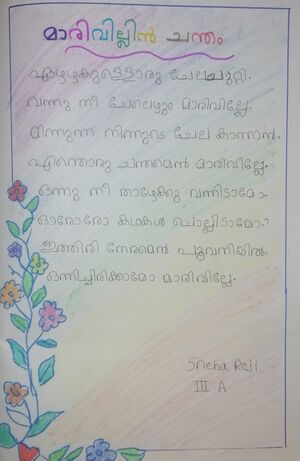 മാരിവില്ലിൻ ചന്തം
ഏഴഴകുള്ളൊരു ചേലചുറ്റി.
വന്നു നീ ചേലെഴും മാരിവില്ലേ.
മിന്നുന്ന നിന്നുടെ ചേല കാണാൻ.
എന്തൊരു ചന്തമെൻ മാരിവില്ലേ.
ഒന്നു നീ താഴേക്കു വന്നിടാമോ.
ഓരോരോ കഥകൾ ചൊല്ലിടാമോ?
ഇത്തിരി നേരമെൻ പൂവനിയിൽ.
ഒന്നിച്ചിരിക്കാമോ മാരിവില്ലേ.
Sneha Reji
III A